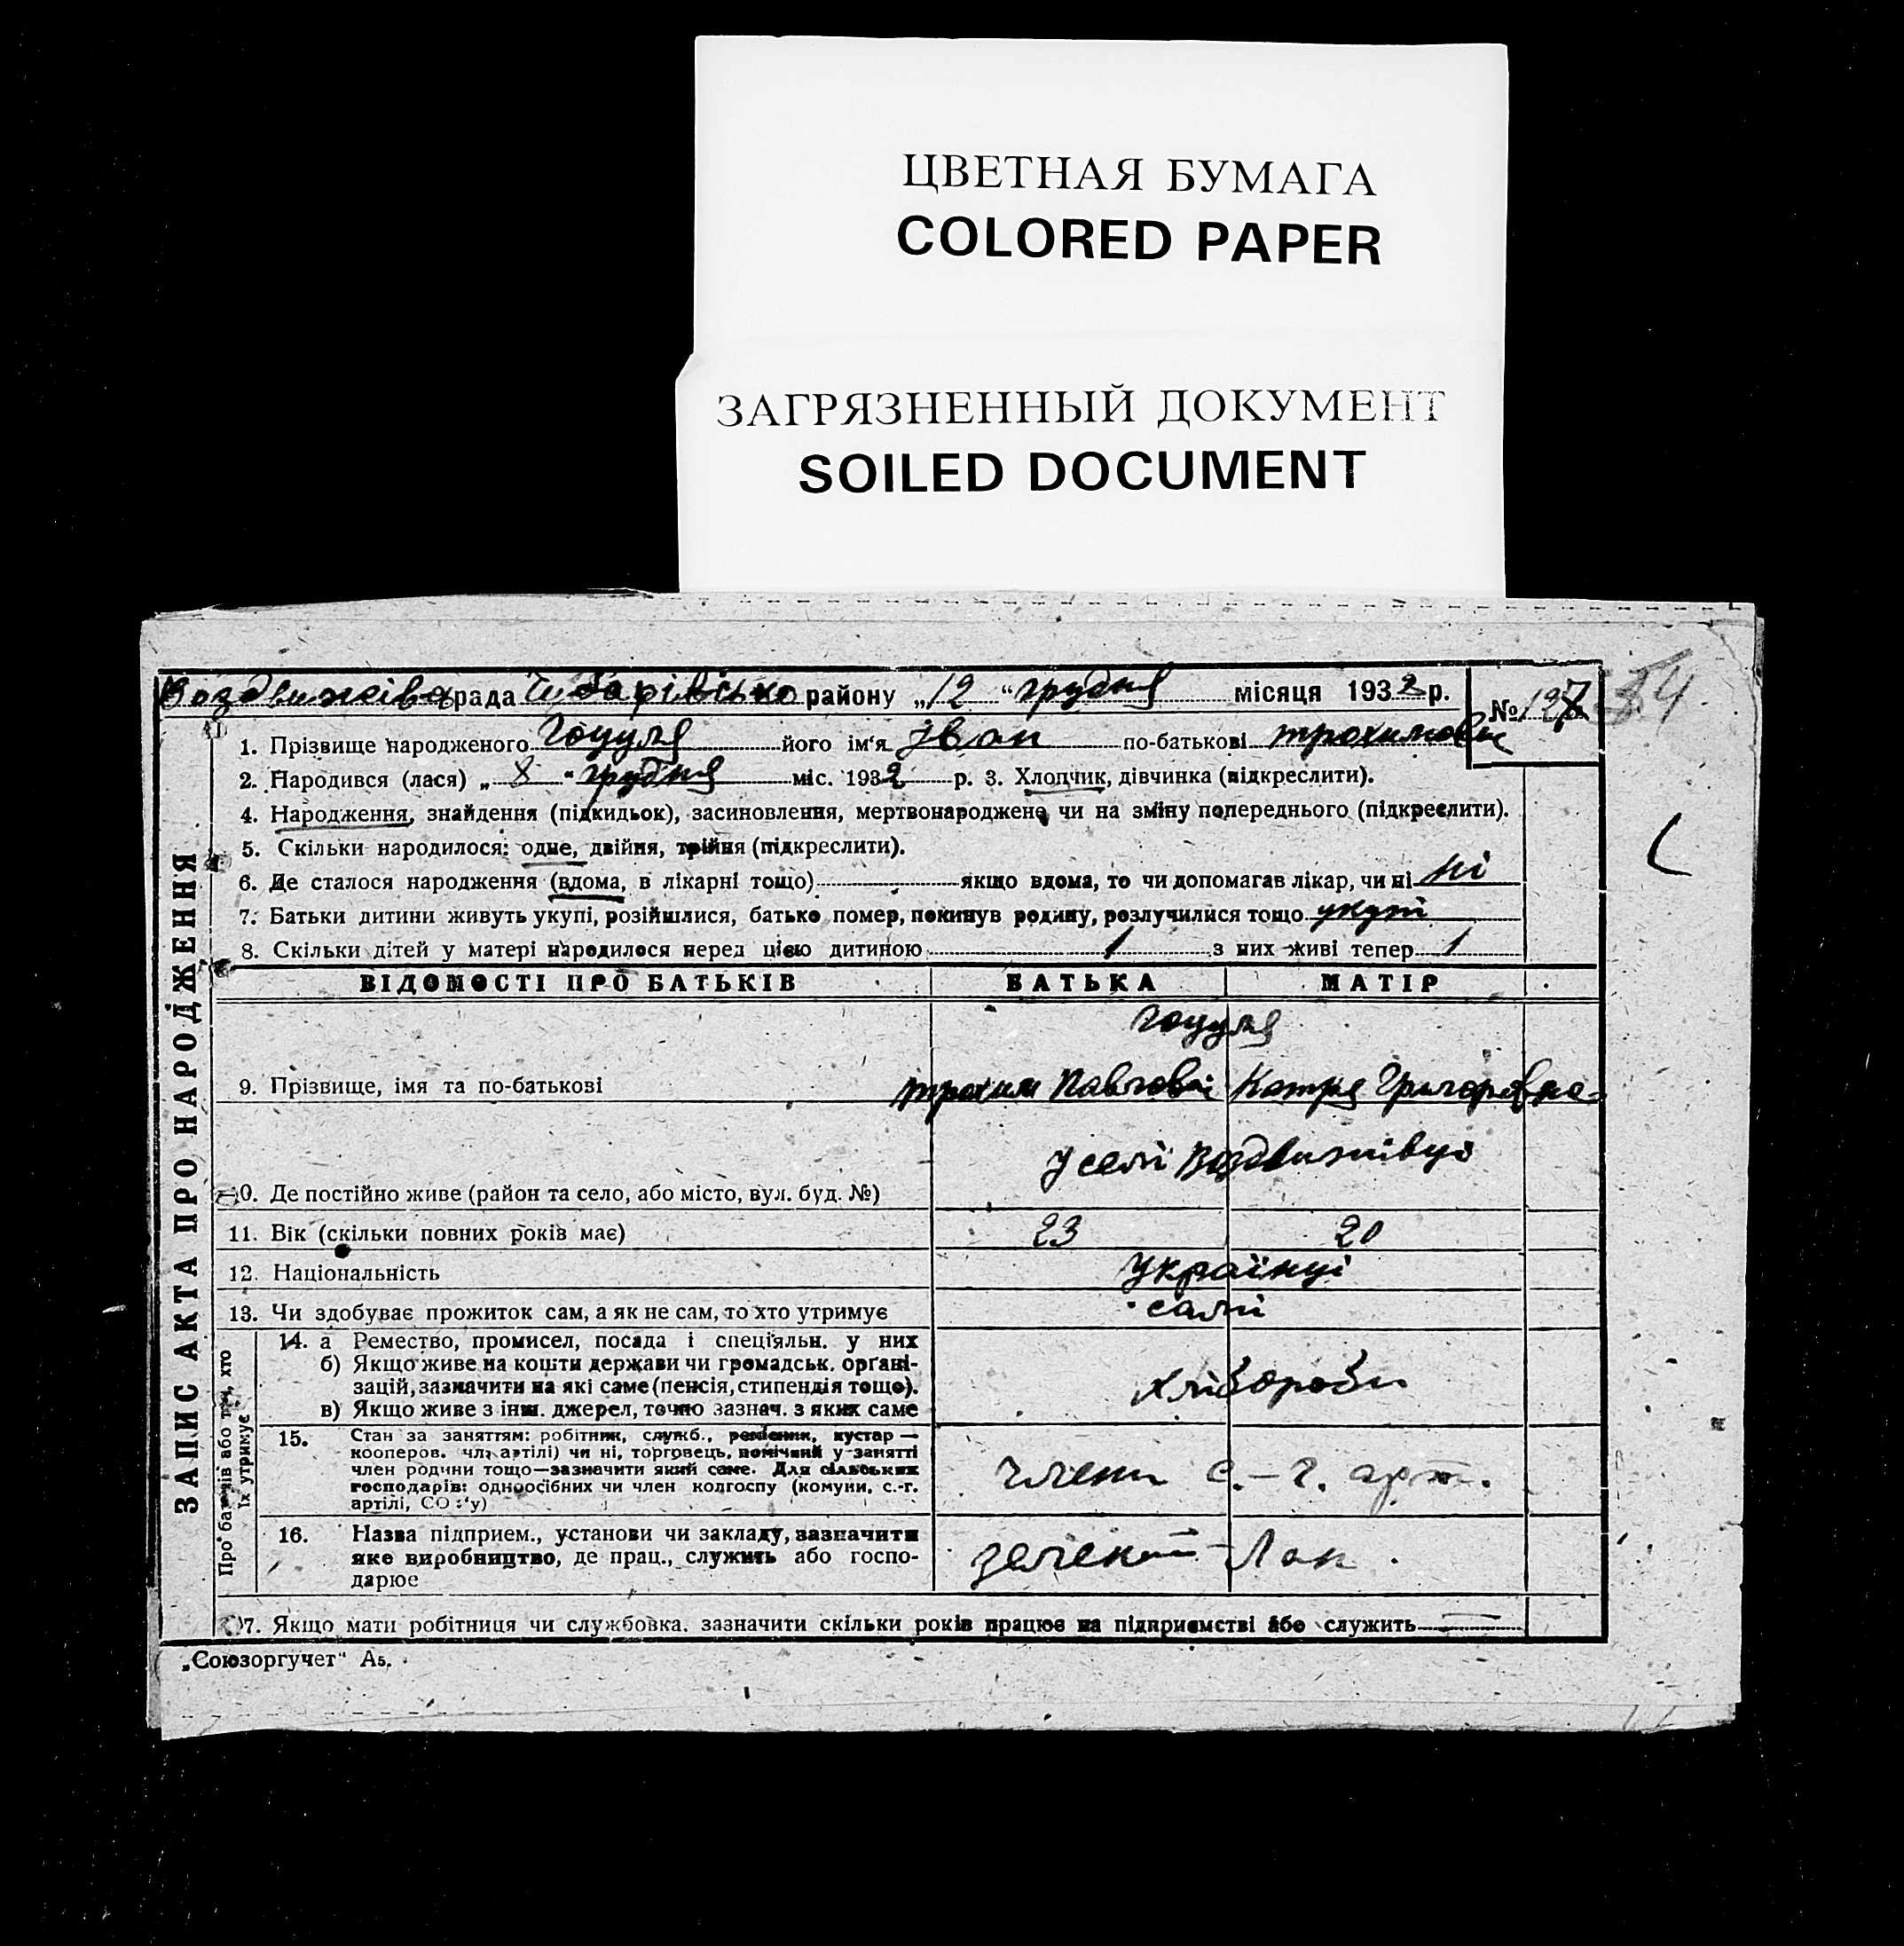 ЦВЕТНАЯ БУМАГА
COLORED PAPER
ЗАГРЯЗНЕННЫЙ ДОКУМЕНТ
SOILED DOCUMENT
Воздвижівс рада Чубарівсько району „12“ грудня місяця 1932 р. №
1. Прізвище народженого Гоцуля його ім'я Іван по-батькові Трохимови
2. Народився (лася) „ 8 “ грудня міс. 1932 р. 3. Хлопчик, дівчинка (підкреслити).
4. Народження, знайдення (підкидьок), засиновлення, мертвонароджене чи на зміну попереднього (підкреслити).
5. Скільки народилося: одне, двійня, трійня (підкреслити).
6. Де сталося народження (вдома, в лікарні тощо) якщо вдома, то чи допомагав лікар, чи ні ні
7. Батьки дитини живуть укупі, розійшлися, батько помер, покинув родину, розлучилися тощо укупі
8. Скільки дітей у матері народилося перед цією дитиною 1 з них живі тепер 1
ЗАПИС АКТА ПРО НАРОДЖЕННЯ
ВІДОМОСТІ ПРО БАТЬКІВ БАТЬКА МАТІР
Гоцуля
9. Прізвище, імя та по-батькові Трохим Павлович Катря Григоровна
У селі Воздвижівці
10. Де постійно живе (район та село, або місто, вул. буд. №)
11. Вік (скільки повних років має) 23 20
12. Національність Українці
13. Чи здобуває прожиток сам, а як не сам, то хто утримує самі
Про батьків або тих, хто їх утримує
14. а Ремество, промисел, посада і спеціяльн. у них
б) Якщо живе на кошти держави чи громадськ. орґані-
зацій, зазначити на які саме (пенсія, стипендія тощо).
в) Якщо живе з інш. джерел, точно зазнач. з яких саме
хлібороби
15. Стан за заняттям: робітник, служб., ремісник, кустар —
кооперов. чл. артілі) чи ні, торговець, помічний у занятті
член родини тощо—зазначити який саме. Для сільських
господарів: одноосібних чи член колгоспу (комуни, с.-г.
артілі, СО у)
члени с.-г. арт.
16. Назва підприєм., установи чи закладу, зазначити
яке виробництво, де прац., служить або госпо-
дарює
зелений Лан
17. Якщо мати робітниця чи службовка. зазначити скільки років працює на підприємстві або служить —
„Союзоргучет“ А5.